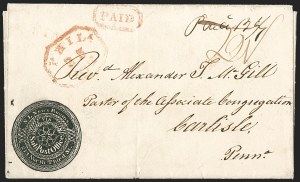 PAID
PHILA
Paid 12½
Revd. Alexander T. McGill
Pastor of the Associate Congregation
Carlisle
Penna